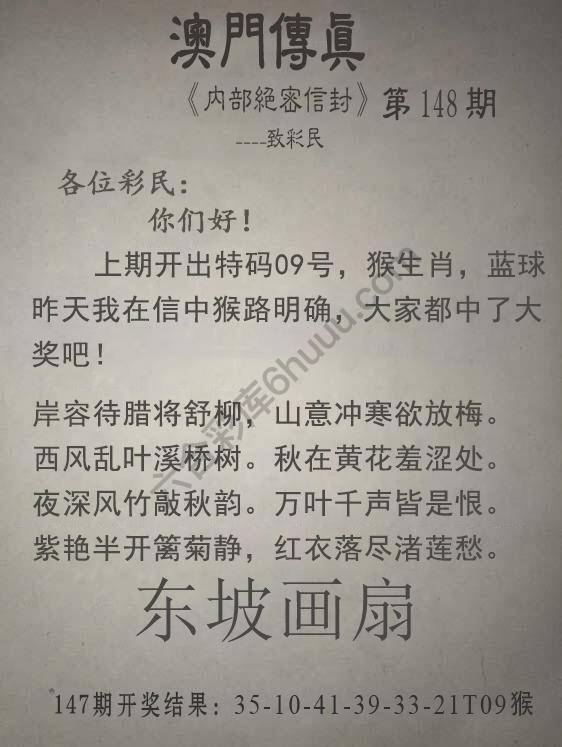 澳門傳眞
《内部絕密信封》第148期
----致彩民
各位彩民：
你们好！
上期开出特码09号，猴生肖，蓝球
昨天我在信中猴路明确，大家都中了大
奖吧！
岸容待腊将舒柳，山意冲寒欲放梅。
西风乱叶溪桥树。秋在黄花羞涩处。
夜深风竹敲秋韵。万叶千声皆是恨。
紫艳半开篱菊静，红衣落尽渚莲愁。
东坡画扇
147期开奖结果：35-10-41-39-33-21T09猴
六合彩库6huuu.com